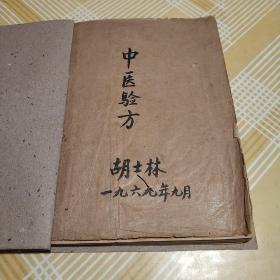 中医验方
胡士林
一九六九年九月